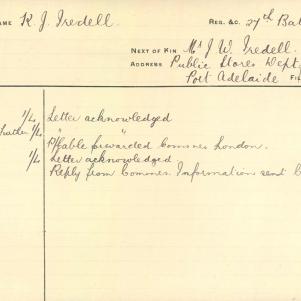 NAME K. J. Iredell. REG. &C. 27th Bat
NEXT OF KIN Mr J. W. Iredell.
ADDRESS Public Stores Dept,
Port Adelaide FI
1/4 Letter acknowledged
1/4 " "
forwarded London.
1/4 Letter acknowledged
Reply from Commr. Information sent